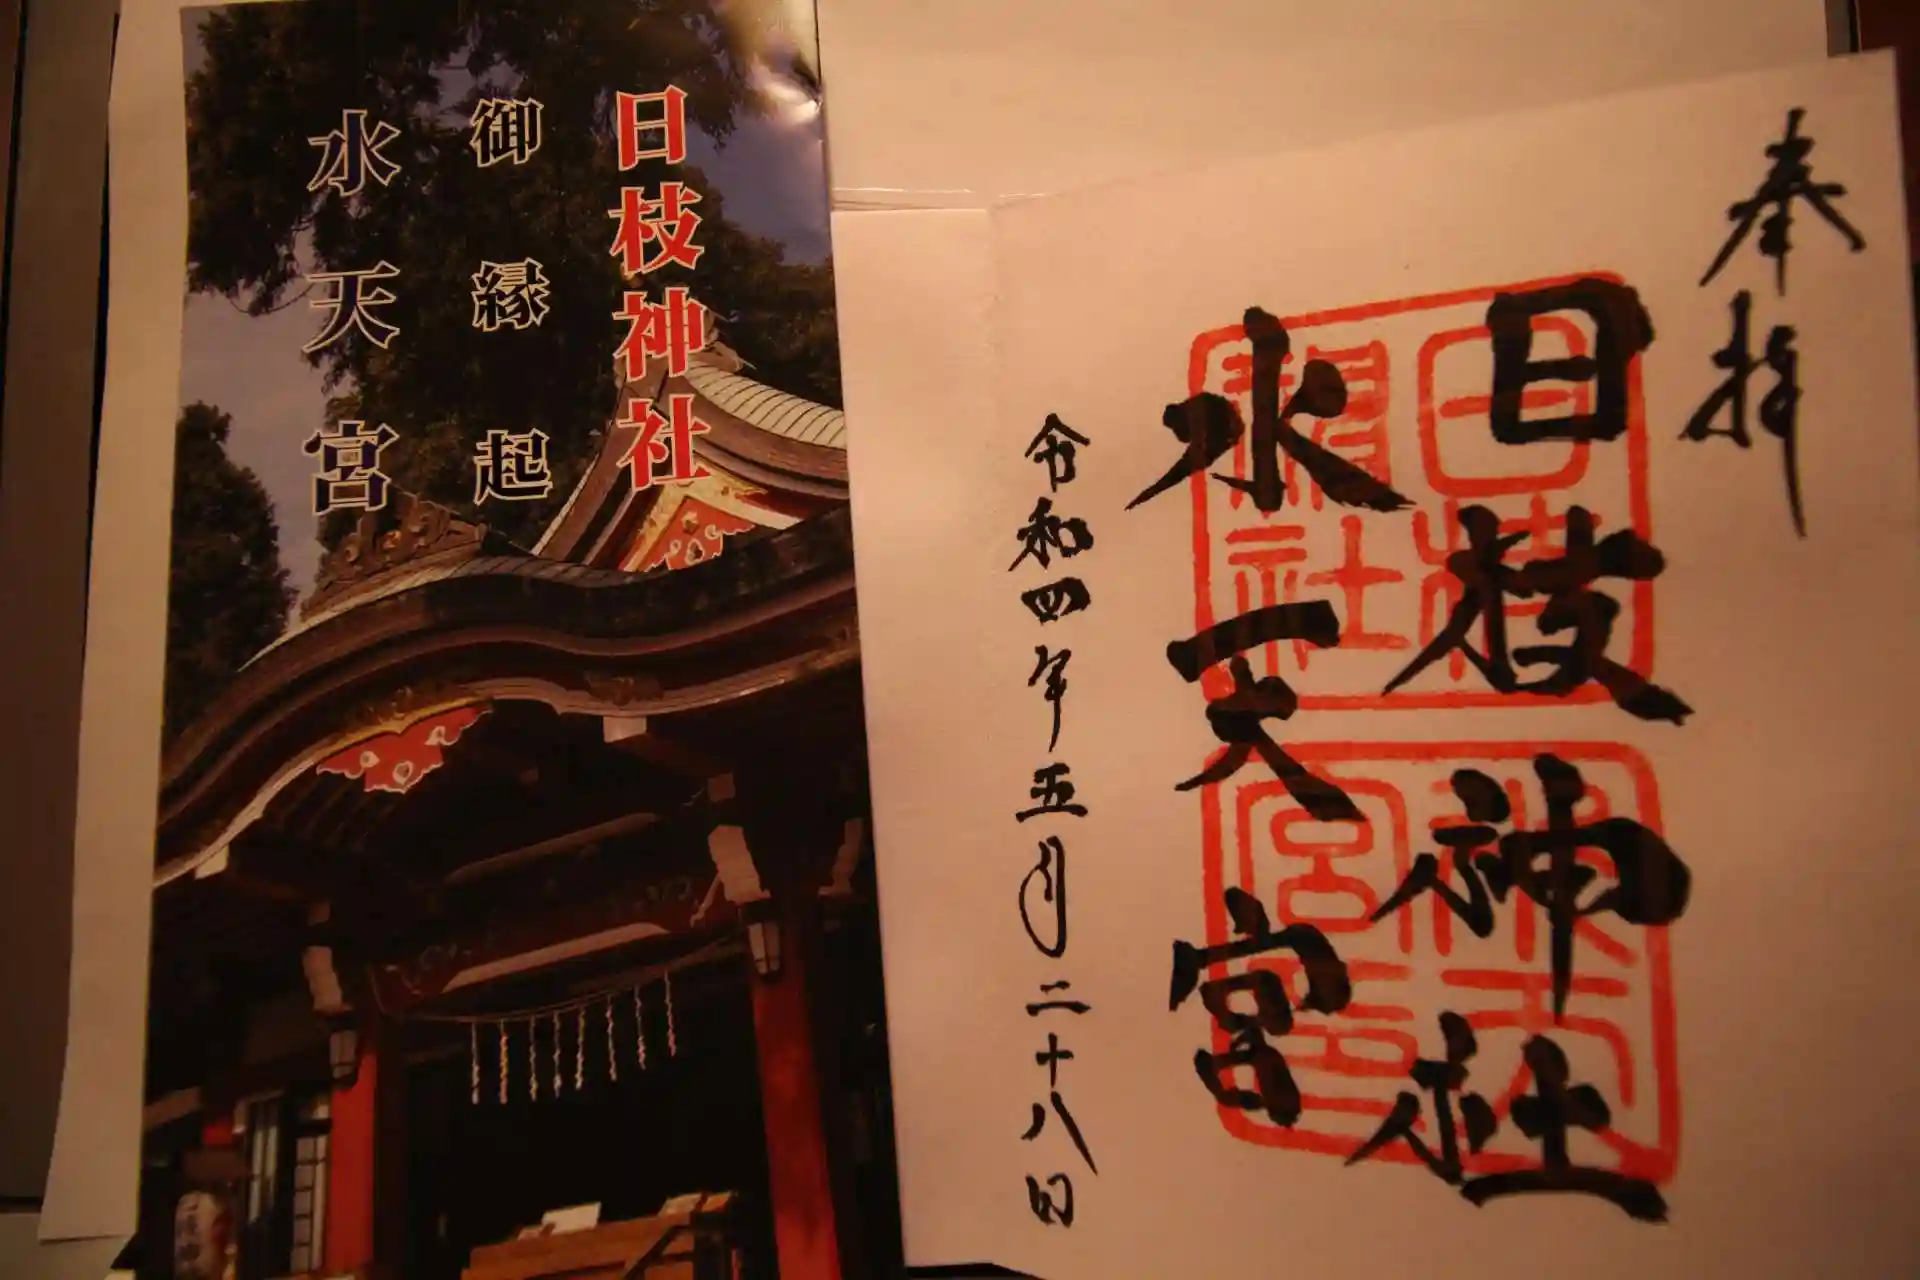 日枝神社
御縁起
水天宮
奉拝
日枝神社
水天宮
令和四年五月二十八日
日枝神社
水天宮